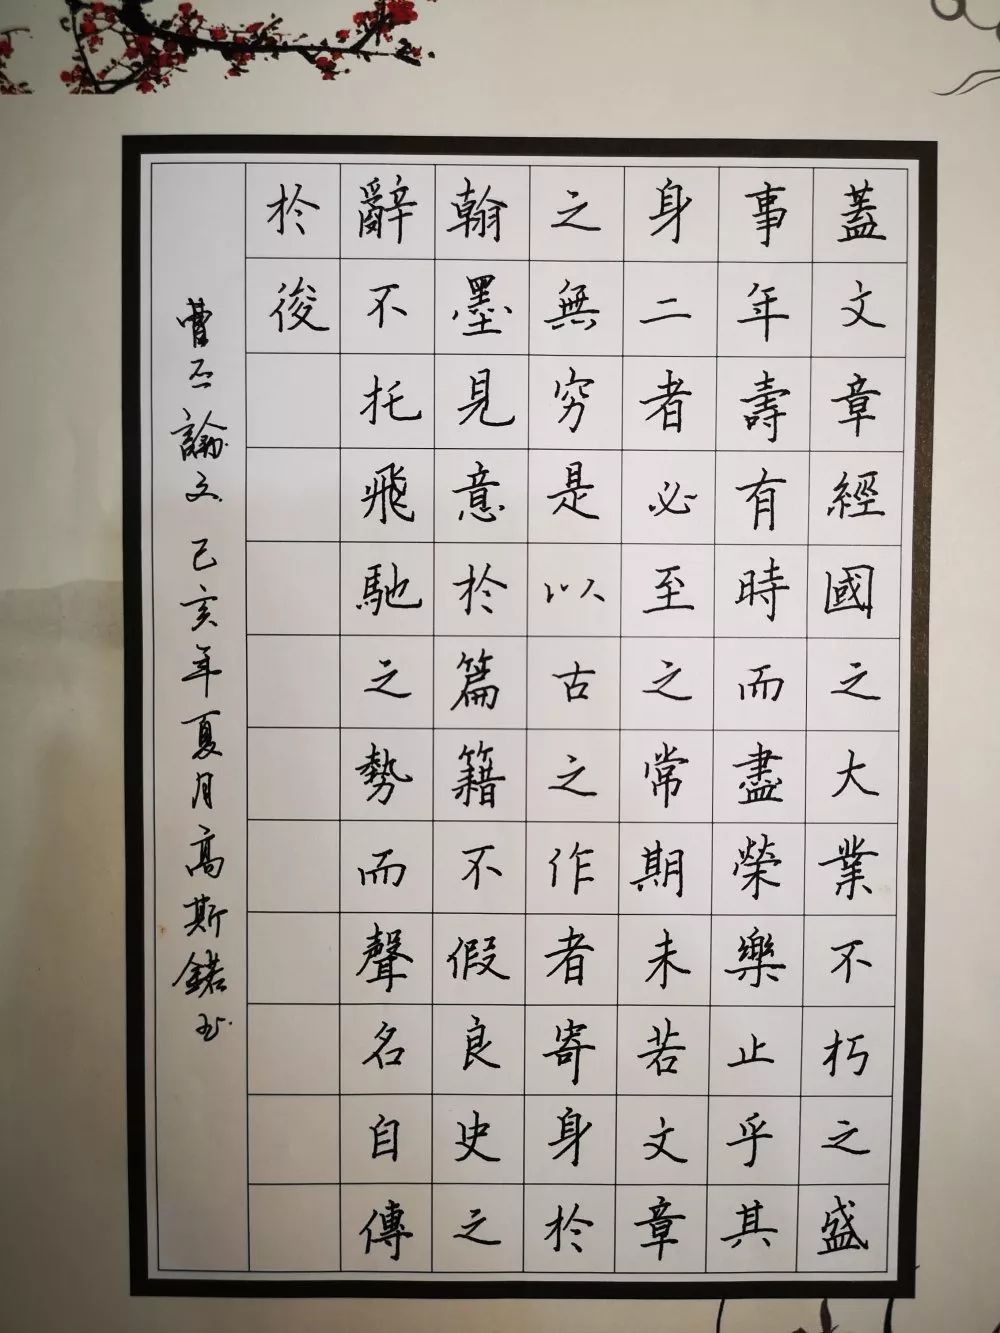 蓋文章經國之大業不朽之盛
事年壽有時而盡榮樂止乎其
身二者必至之常期未若文章
之無穷是以古之作者寄身於
翰墨見意於篇籍不假良史之
辭不托飛馳之勢而聲名自傳
於後
曹丕論文己亥年夏月高斯鍩书